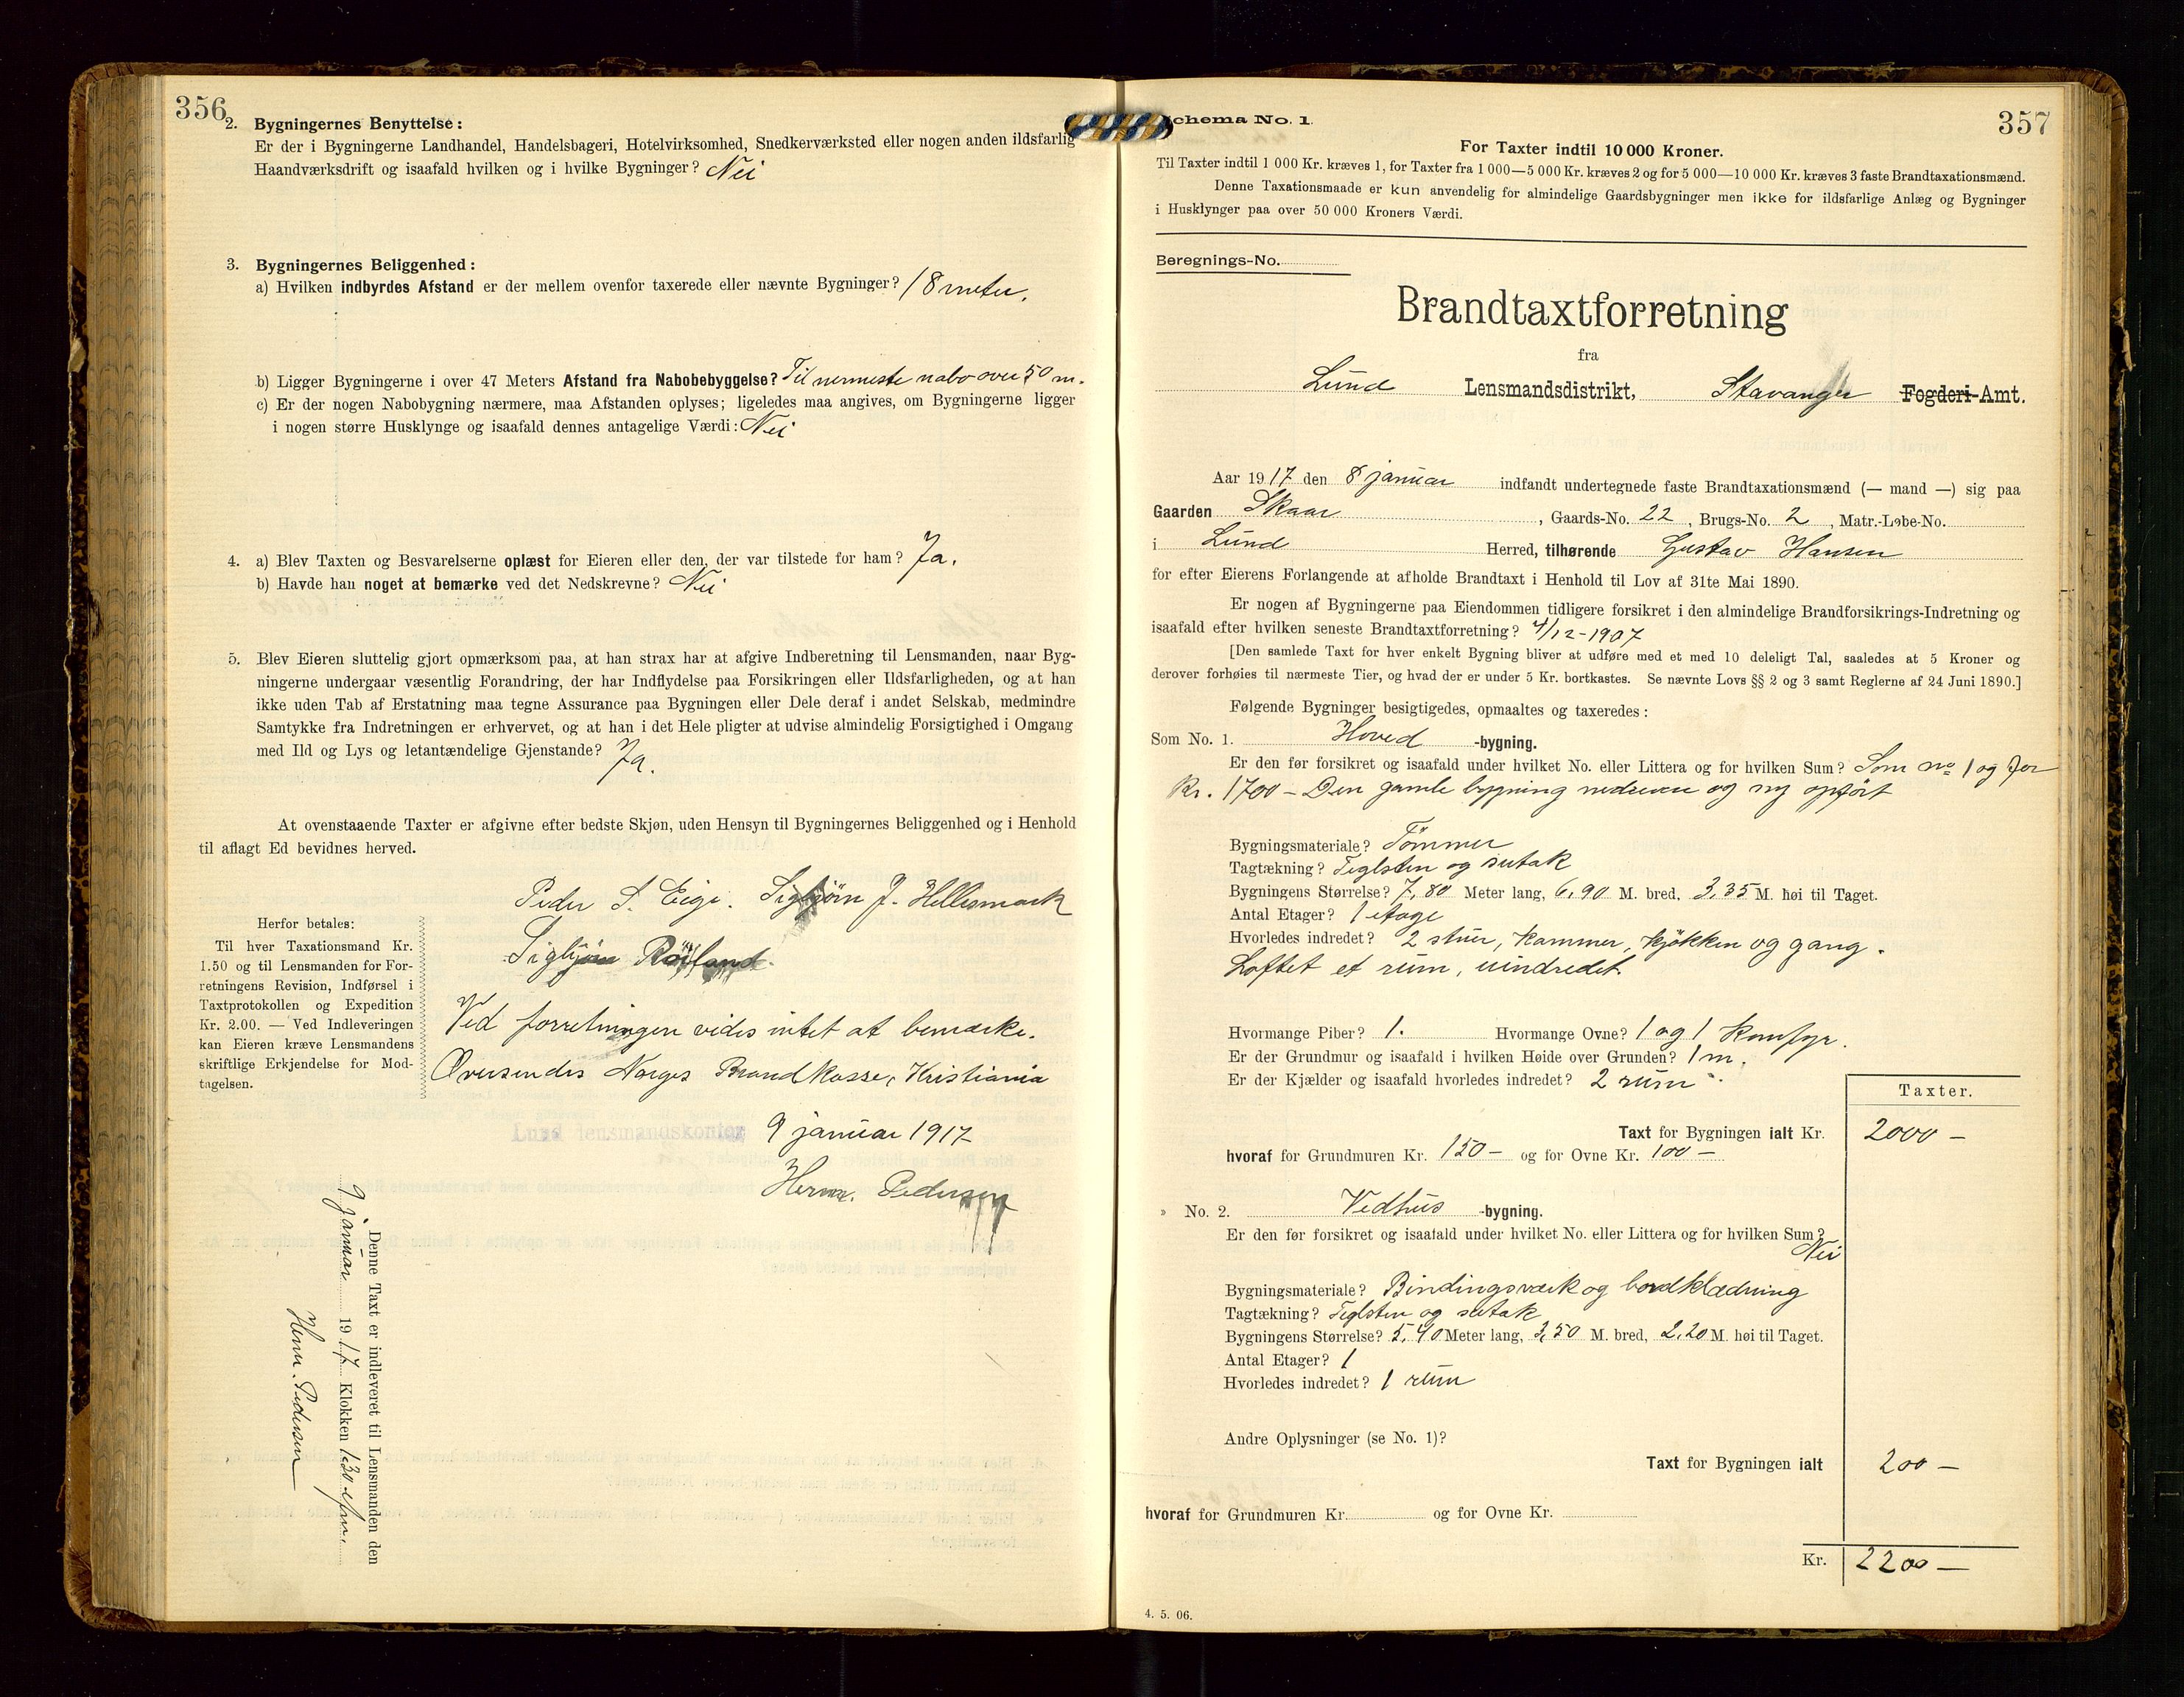 356
2. Bygningernes Benyttelse :
Er der i Bygningerne Landhandel, Handelsbageri, Hotelvirksomhed, Snedkerværksted eller nogen anden ildsfarlig
Haandværksdrift og isaafald hvilken og i hvilke Bygninger? Nei
3. Bygningernes Beliggenhed :
a) Hvilken indbyrdes Afstand er der mellem ovenfor taxerede eller nævnte Bygninger? 18 meter.
b) Ligger Bygningerne i over 47 Meters Afstand fra Nabobebyggelse? Til nermeste nabo over 50 m.
c) Er der nogen Nabobygning nærmere, maa Afstanden oplyses; ligeledes maa angives, om Bygningerne ligger
i nogen større Husklynge og isaafald dennes antagelige Værdi: Nei
4. a) Blev Taxten og Besvarelserne oplæst for Eieren eller den, der var tilstede for ham? Ja.
b) Havde han noget at bemærke ved det Nedskrevne? Nei
5. Blev Eieren sluttelig gjort opmærksom paa, at han strax har at afgive Indberetning til Lensmanden, naar Byg-
ningerne undergaar væsentlig Forandring, der har Indflydelse paa Forsikringen eller Ildsfarligheden, og at han
ikke uden Tab af Erstatning maa tegne Assurance paa Bygningen eller Dele deraf i andet Selskab, medmindre
Samtykke fra Indretningen er erhvervet, og at han i det Hele pligter at udvise almindelig Forsigtighed i Omgang
med Ild og Lys og letantændelige Gjenstande? Ja.
At ovenstaaende Taxter er afgivne efter bedste Skjøn, uden Hensyn til Bygningernes Beliggenhed og i Henhold
til aflagt Ed bevidnes herved.
Peder S. Eige. Sigbjörn J. Hellesmark
Sigbjörn Röiland.
Herfor betales:
Til hver Taxationsmand Kr.
1.50 og til Lensmanden for For-
retningens Revision, Indførsel i
Taxtprotokollen og Expedition
Kr. 2.00. — Ved Indleveringen
kan Eieren kræve Lensmandens
skriftlige Erkjendelse for Mod-
tagelsen.
Ved forretningen vides intet at bemærke.
Oversendes Norges Brandkasse, Kristiania
Lund lensmandskontor 9 januar 1917
Herm. Pedersen
Denne Taxt er indleveret til Lensmanden den
9 januar 1917 Klokken 1.30 efm.
Herm. Pedersen
Schema No. 1.
357
For Taxter indtil 10 000 Kroner.
Til Taxter indtil 1 000 Kr. kræves 1, for Taxter fra 1 000—5 000 Kr. kræves 2 og for 5 000—10 000 Kr. kræves 3 faste Brandtaxationsmænd.
Denne Taxationsmaade er kun anvendelig for almindelige Gaardsbygninger men ikke for ildsfarlige Anlæg og Bygninger
i Husklynger paa over 50 000 Kroners Værdi.
Beregnings-No.
Brandtaxtforretning
fra
Lund Lensmandsdistrikt, Stavanger Fogderi-Amt.
Aar 1917 den 8 januar indfandt undertegnede faste Brandtaxationsmænd (— mand —) sig paa
Gaarden Skaar, Gaards-No. 22, Brugs-No. 2, Matr.-Løbe-No.
i Lund Herred, tilhørende Gustav Hansen
for efter Eierens Forlangende at afholde Brandtaxt i Henhold til Lov af 31te Mai 1890.
Er nogen af Bygningerne paa Eiendommen tidligere forsikret i den almindelige Brandforsikrings-Indretning og
isaafald efter hvilken seneste Brandtaxtforretning? 4/12-1907
[Den samlede Taxt for hver enkelt Bygning bliver at udføre med et med 10 deleligt Tal, saaledes at 5 Kroner og
derover forhøies til nærmeste Tier, og hvad der er under 5 Kr. bortkastes. Se nævnte Lovs §§ 2 og 3 samt Reglerne af 24 Juni 1890.]
Følgende Bygninger besigtigedes, opmaaltes og taxeredes :
Som No. 1. Hoved -bygning.
Er den før forsikret og isaafald under hvilket No. eller Littera og for hvilken Sum? Som no 1 og for
Kr. 1700 – Den gamle bygning nedreven og ny opfört
Bygningsmateriale? Tömmer
Tagtækning? Teglsten og sutak
Bygningens Størrelse? 7,80 Meter lang, 6,90 M. bred, 3,35 M. høi til Taget.
Antal Etager? 1 etage
Hvorledes indredet? 2 stuer, kammer, kjökken og gang.
Loftet et rum, uindredet.
Hvormange Piber? 1. Hvormange Ovne? 1 og 1 komfyr.
Er der Grundmur og isaafald i hvilken Høide over Grunden? 1 m.
Er der Kjælder og isaafald hvorledes indredet? 2 rum
Taxter.
Taxt for Bygningen ialt Kr. 2000 –
hvoraf for Grundmuren Kr. 150 – og for Ovne Kr. 100 –
» No. 2. Vedhus -bygning.
Er den før forsikret og isaafald under hvilket No. eller Littera og for hvilken Sum?
Nei
Bygningsmateriale? Bindingsværk og bordklædning
Tagtækning? Teglsten og sutak
Bygningens Størrelse? 5,40 Meter lang, 3,50 M. bred, 2,20 M. høi til Taget.
Antal Etager? 1
Hvorledes indredet? 1 rum
Andre Oplysninger (se No. 1)?
Taxt for Bygningen ialt 200 –
hvoraf for Grundmuren Kr. og for Ovne Kr.
Kr. 2200 –
4. 5. 06.